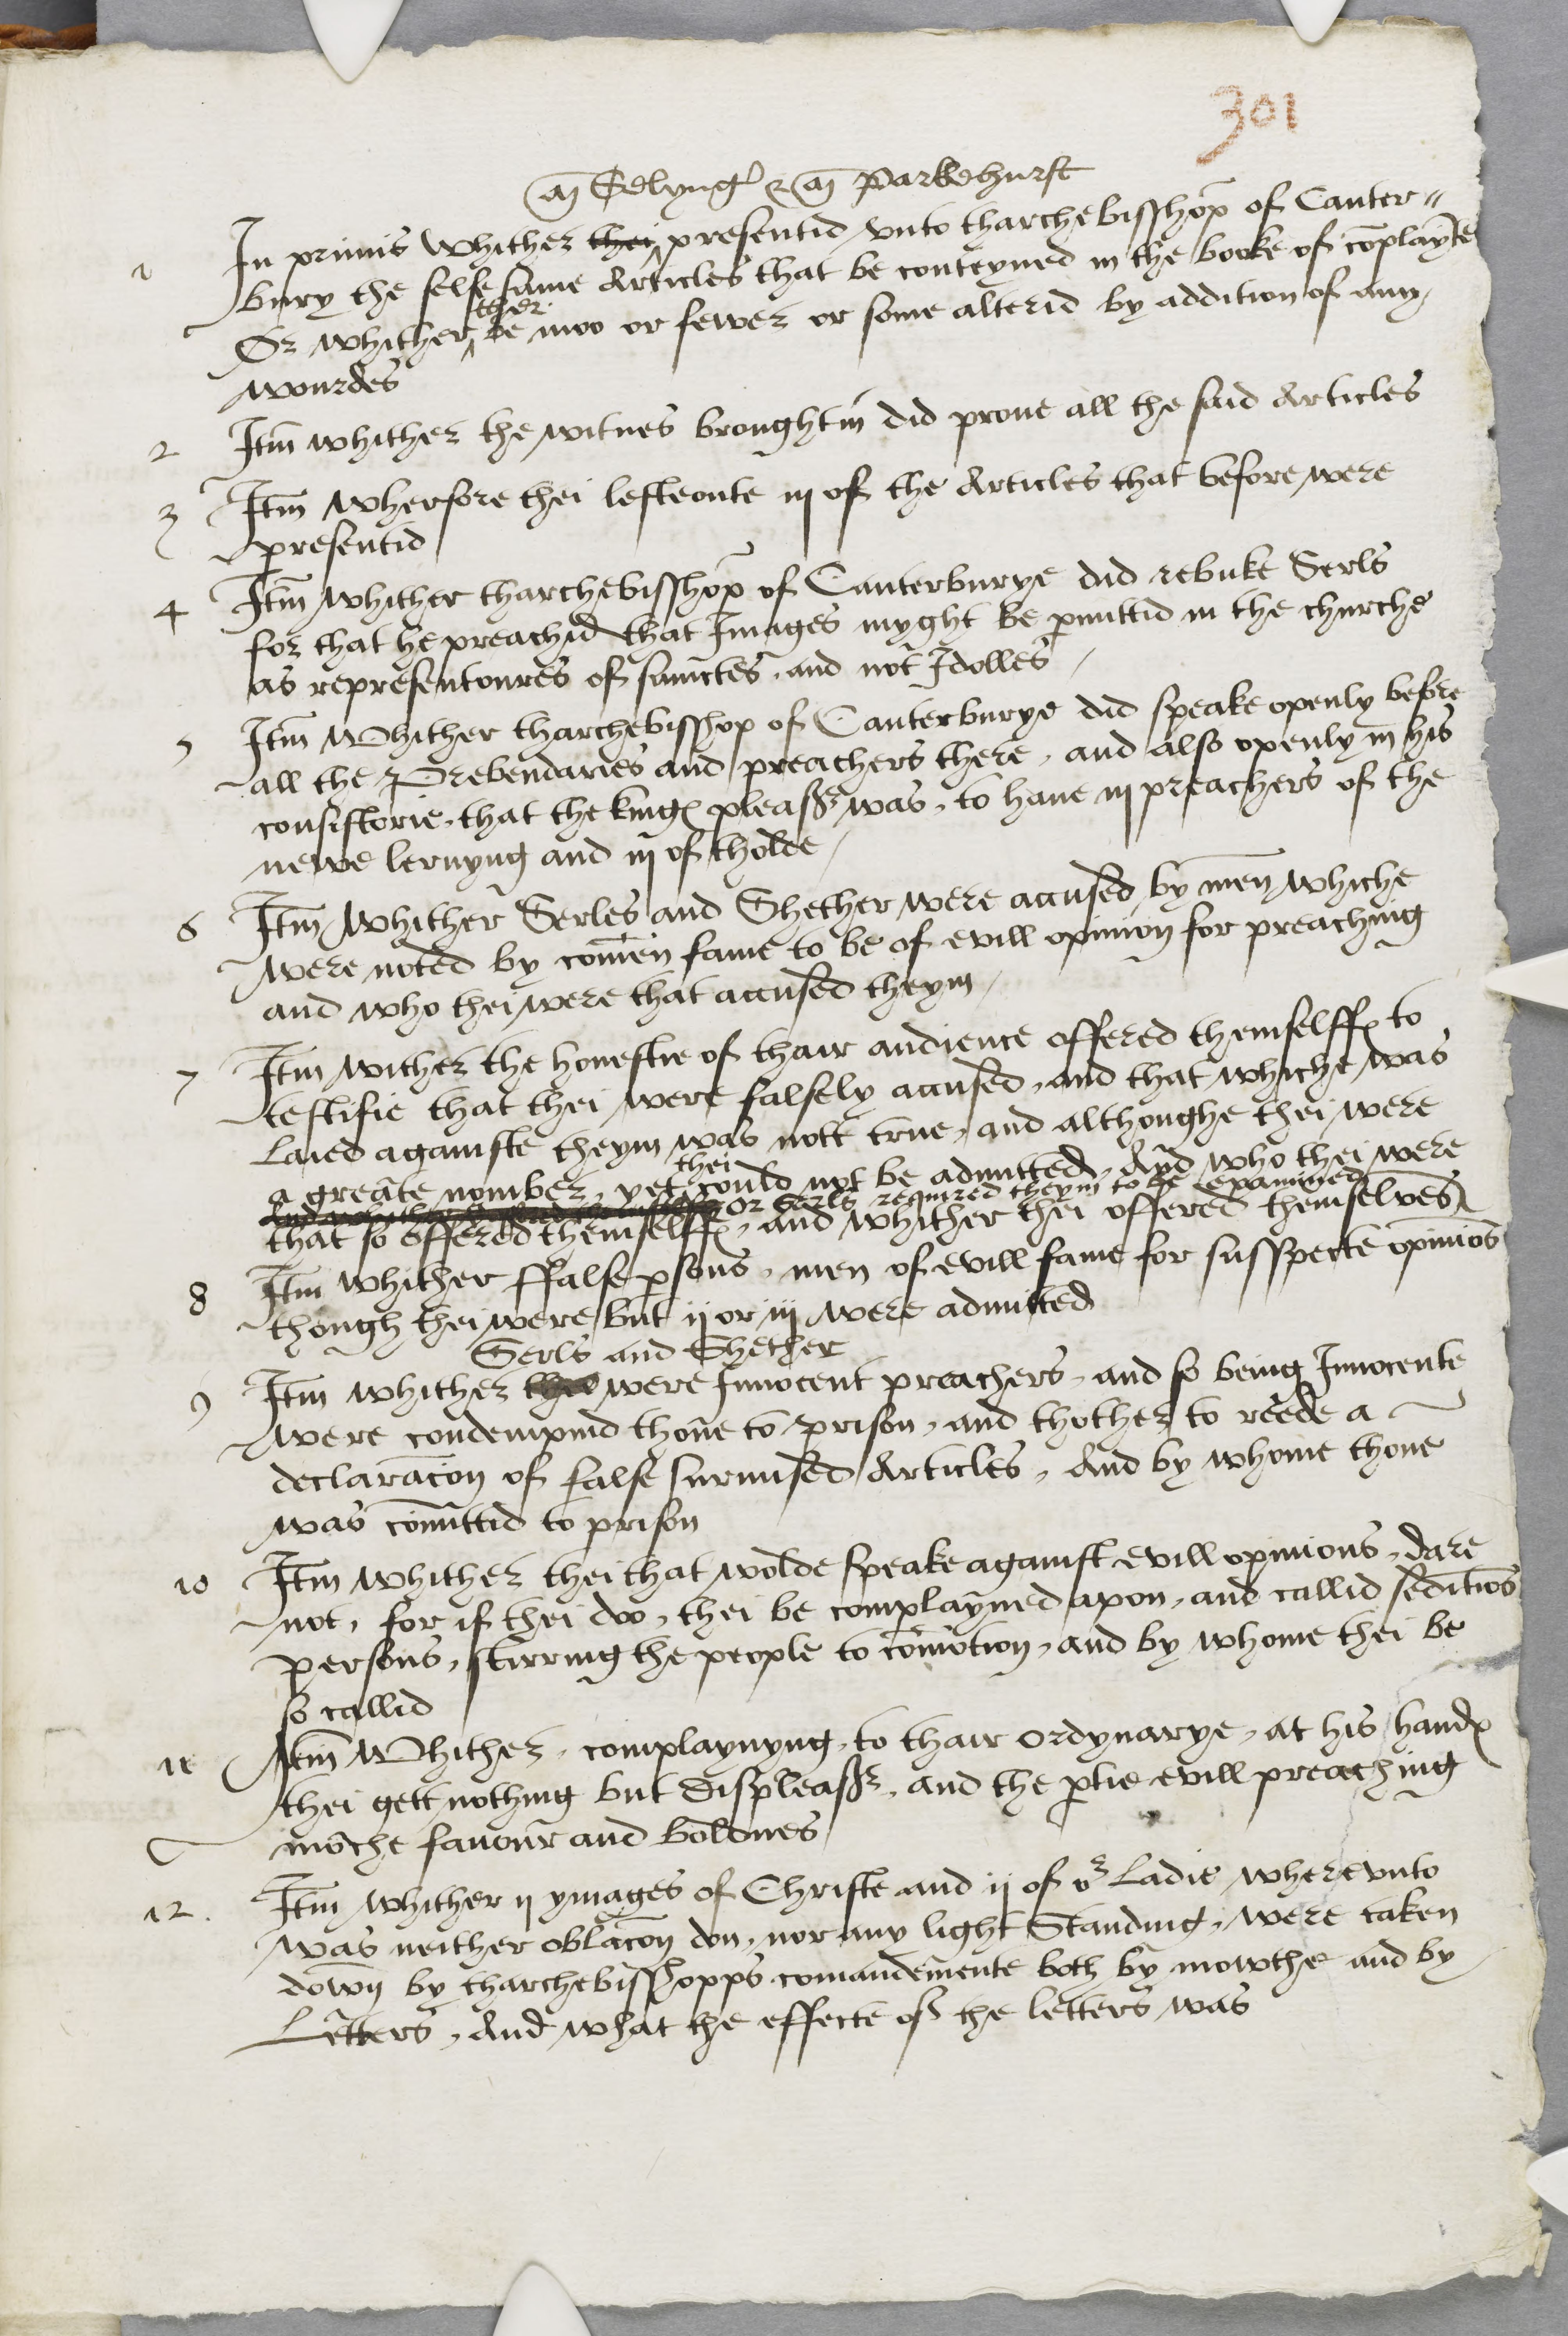 301
Mr Selynger & Mr Parkehurst
1 In primis whither thei presentid vnto tharchebisshop of Canter=
bury the selfe same Articles that be conteyned in the booke of cōplaynte
Or whither ther be moo or fewer or some alterid by addition of any
wourdes
2 Itm̄ whither the witnes brought in did prove all the said Articles
3 Itm̄ wherfore thei lefte oute iij of the Articles that before were
presentid
4 Itm̄ whither tharchebisshop of Canterburye did rebuke Serls
for that he preachid that Images myght be p̄mittid in the churche
as representoures of sainctes, and not Idolles
5 Itm̄ Whither tharchebisshop of Canterburye did speake openly before
all the Prebendaries and preachers there, and also openly in his
consistorie, that the kinges pleasr was, to have iij preachers of the
newe lernyng and iij of tholde
6 Itm̄ whither Serles and Shether were accused by men whiche
were noted by comēn fame to be of evill opinion for preaching
and who thei were that accused theym
7 Itm̄ wither the honestie of thair audience offered themselffes to
testifie that thei were falsely accused, and that whiche was
laied againste theym was nott true, and althoughe thei were
a greate nomber, yet thei could not be admitted, And who thei were
Or Serls required theym to be examined
that so offered themselffes, and whither thei offered themselves
8 Itm̄ whither ffalse p̄sons, men of evill fame for susspecte opinions
though thei were but ij or iij were admitted
Serls and Shether
9 Itm̄ whither thei were Innocent preachers, and so being Innocente
were condempnid thone to prison, and thother to reede a
declaracōn of false surmised Articles, And by whome thone
was cōmittid to prison
10 Itm̄ whither thei that wolde speake against evill opinions, dare
not, for if thei do, thei be complayned apon, and callid seditios
persons, stirring the people to cōmotion, and by whome thei be
so callid
11 Itm̄ Whither, complaynyng to thair Ordynarye, at his handes
thei gett nothing but displeasr, and the p̄tie evill preaching
moche favour and boldnes
12. Itm̄ whither ij ymages of Christe and ij of or Ladie wherevnto
was neither oblacōn don, nor any light Standing, were taken
down by tharchebisshopps comaundemente both by mowthe and by
Letters, And what the effecte of the letters was